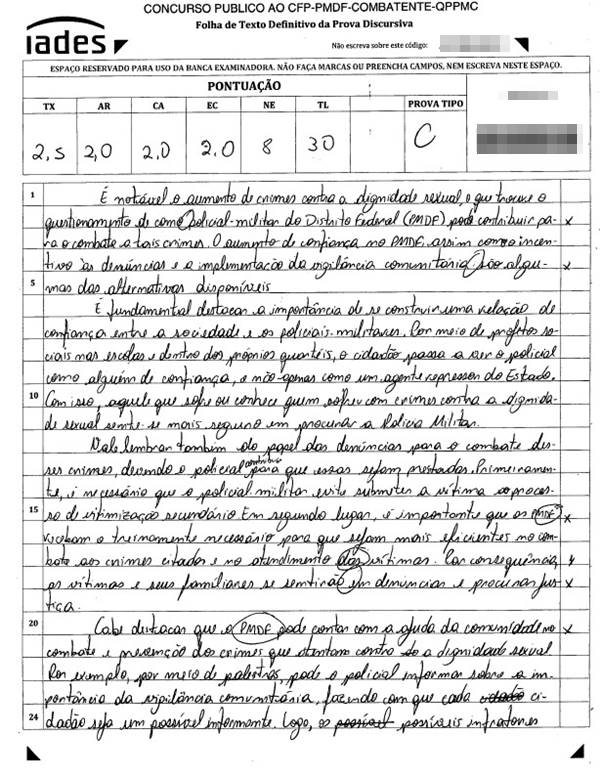 CONCURSO PUBLICO AO CFP-PMDF-COMBATENTE-QPPMC
Folha de Texto Definitivo da Prova Discursiva
iades
Não escreva sobre este código:
ESPAÇO RESERVADO PARA USO DA BANCA EXAMINADORA. NÃO FAÇA MARCAS OU PREENCHA CAMPOS, NEM ESCREVA NESTE ESPAÇO.
PONTUAÇÃO
TX AR CA EC NE TL PROVA TIPO
2,5 2,0 2,0 2,0 8 30 C
1 É notável o aumento de crimes contra a dignidade sexual, o que trouxe o
questionamento de como policial-militar do Distrito Federal (PMDF) pode contribuir pa- x
ra o combate a tais crimes. O aumento de confiança no PMDF, assim como o incen-
tivo às denúncias e a implementação da vigilância comunitária, são algu- x
5 mas das alternativas disponíveis
É fundamental destacar a importância de se construir uma relação de
confiança entre a sociedade e os policiais-militares. Por meio de projetos so-
ciais nas escolas e dentro dos próprios quartéis, o cidadão passa a ver o policial
como alguém de confiança, e não apenas como um agente repressor do Estado.
10 Com isso, aquele que sofre ou conhece quem sofreu com crimes contra a dignida-
de sexual sente-se mais seguro em procurar a Polícia Militar.
Vale lembrar também do papel das denúncias para o combate des-
ses crimes, devendo o policial contribuir para que essas sejam prestadas. Primeiramen-
te, é necessário que o policial militar evite submeter a vítima ao proces-
15 so de vitimização secundário Em segundo lugar, é importante que os PMDF x
recebam o treinamento necessário para que sejam mais eficientes no com-
bate aos crimes citados e no atendimento das vítimas. Por consequência, x
as vítimas e seus familiares se sentirão em denúncias e procurar jus- x
tiça.
20 Cabe destacar que o PMDF pode contar com a ajuda da comunidade no x
combate e prevenção dos crimes que atentam contra a dignidade sexual.
Por exemplo, por meio de palestras, pode o policial informar sobre a im-
portância da vigilância comunitária, fazendo com que cada ci-
24 dadão seja um possível informante. Logo, os possíveis infratores